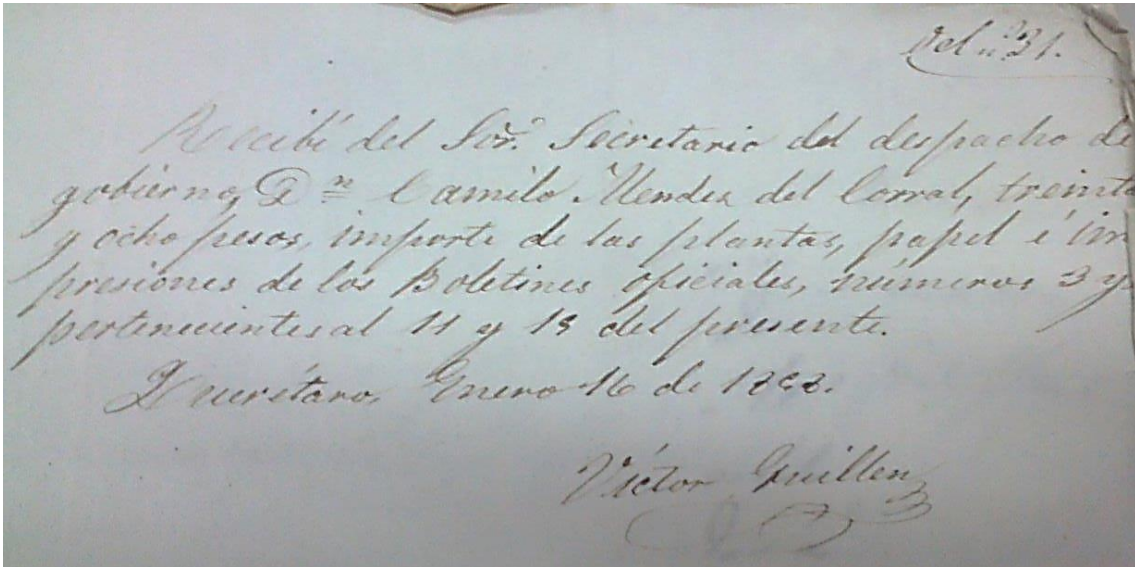 Del n.º 31.
Recibí del Sor. Secretario del despacho de
gobierno, Dn Camilo Mendez del Corral, treinta
y ocho pesos, importe de las plantas, papel é im
presiones de los Boletines oficiales, números 3 y
pertenecientes al 11 y 15 del presente.
Querétaro, Enero 16 de
Víctor Guillen